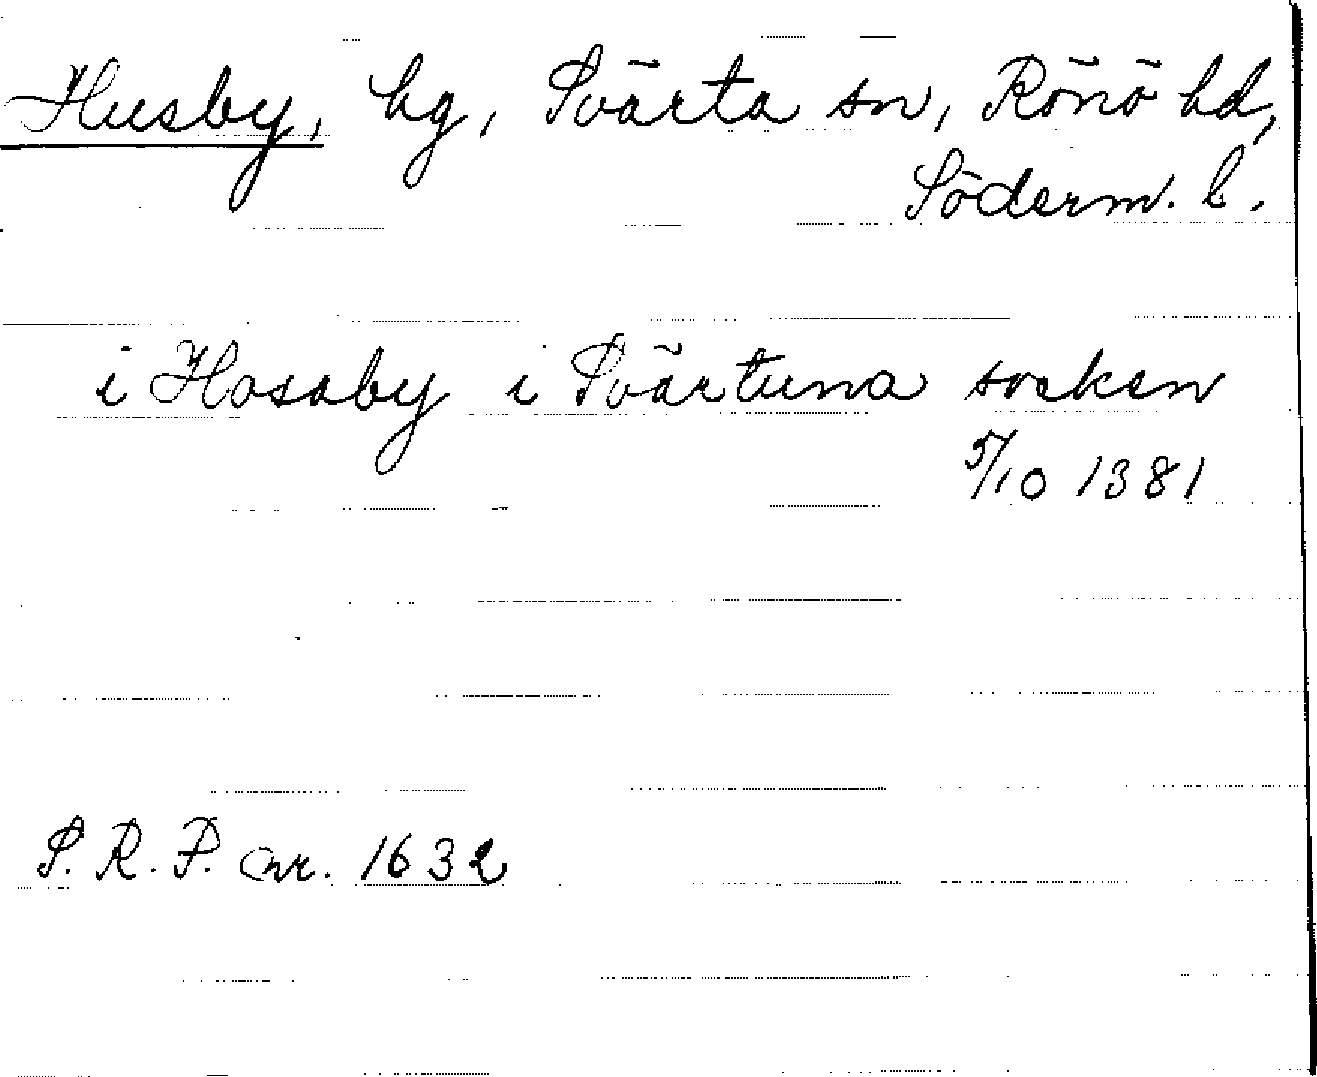 Husby, hg, Svärta sn, Rönö hd,
Söderm. l.
i Hosaby i Svärtuna socken
5/10 1381
S. R. P. nr. 1632